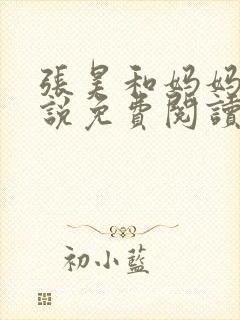 張昊和妈妈
說免費閱讀
初小藍